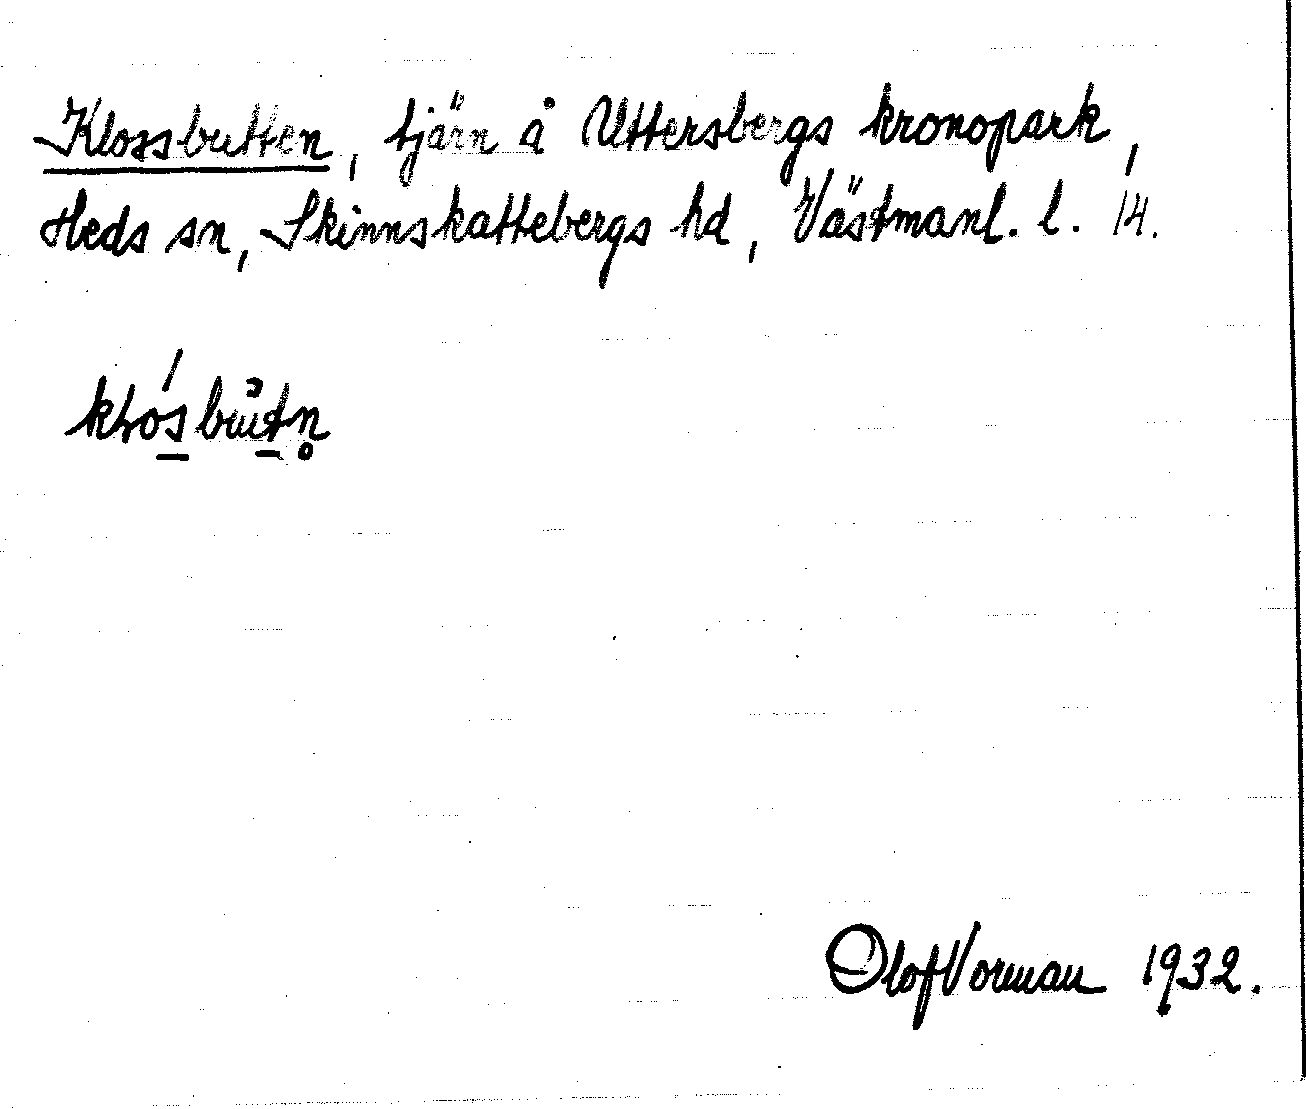 Klossbutten, tjärn å Uttersbergs kronopark,
Heds sn, Skinnskattebergs hd, Västmanl. l. 14.
Olof Vorman 1932.